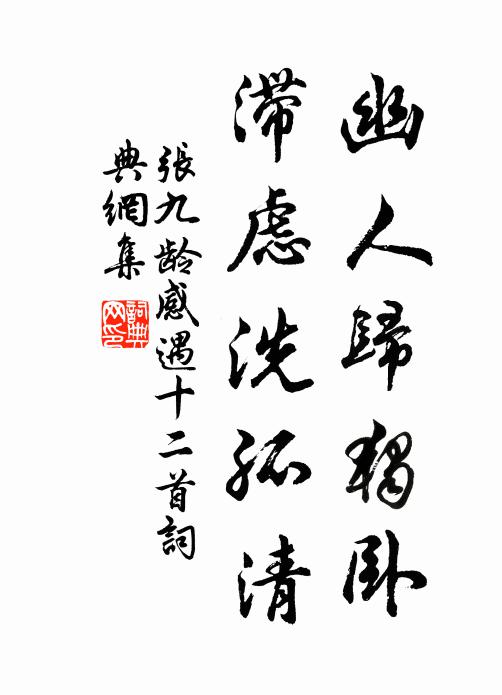 幽人歸獨卧
滞慮洗孤清
張九齡感遇十二首詞
典網集
詞典網印